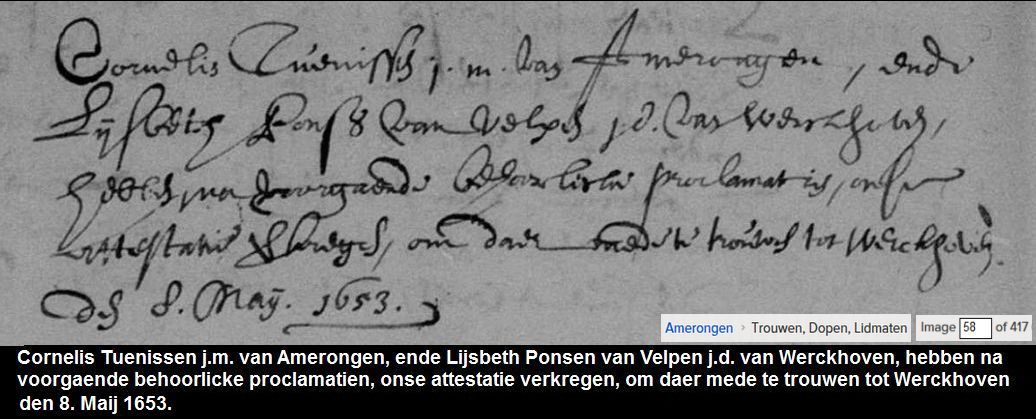 Cornelis Tuenissen j. m. van Amerongen, ende
Lijsbeth Pons van Velpen j d. van Werckhoven,
hebben na voorgaende behoorlicke proclamatien, onse
attestatie verkregen, om daer mede te trouwen tot Werckhoven
den 8. Maij. 1653.
Amerongen › Trouwen, Dopen, Lidmaten
Image 58 of 417
Cornelis Tuenissen j.m. van Amerongen, ende Lijsbeth Ponsen van Velpen j.d. van Werckhoven, hebben na
voorgaende behoorlicke proclamatien, onse attestatie verkregen, om daer mede te trouwen tot Werckhoven
den 8. Maij 1653.